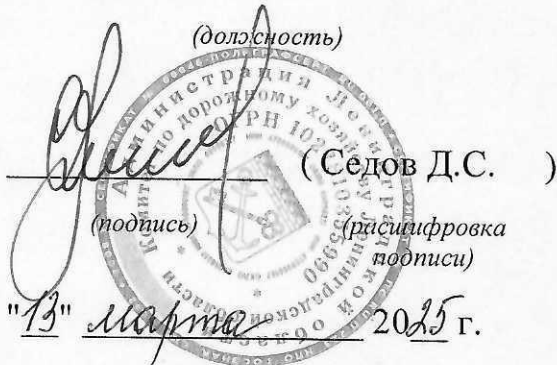 (должность)
( Седов Д.С. )
(подпись) (расшифровка подписи)
"13" марта 2025 г.
Администрация Ленинградской области
Комитет по дорожному хозяйству Ленинградской области
ОГРН